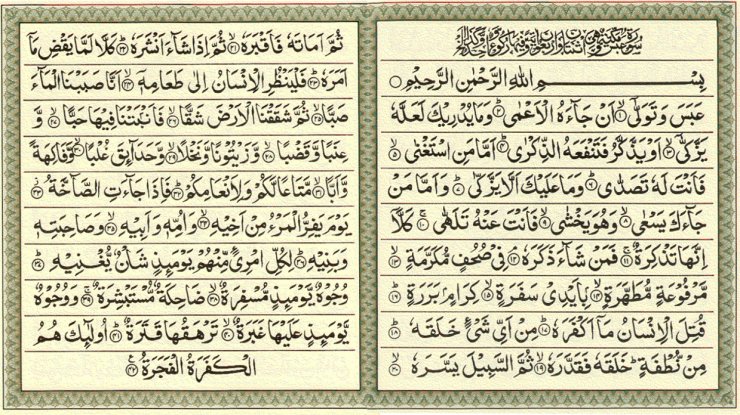 سورة عبس مكية وهي اثنتان واربعون اية وفيها ركوع واحد
بِسْمِ اللهِ الرَّحْمٰنِ الرَّحِيْمِ ○
عَبَسَ وَتَوَلّٰىٓ ۙ﴿١﴾ اَنْ جَآءَهُ الْاَعْمٰى ؕ﴿٢﴾ وَمَا يُدْرِيْكَ لَعَلَّهٗ
يَزَّكّٰىٓ ۙ﴿٣﴾ اَوْ يَذَّكَّرُ فَتَنْفَعَهُ الذِّكْرٰى ؕ﴿٤﴾ اَمَّا مَنِ اسْتَغْنٰى ۙ﴿٥﴾
فَاَنْتَ لَهٗ تَصَدّٰى ؕ﴿٦﴾ وَمَا عَلَيْكَ اَلَّا يَزَّكّٰى ؕ﴿٧﴾ وَاَمَّا مَنْ
جَآءَكَ يَسْعٰى ۙ﴿٨﴾ وَهُوَ يَخْشٰى ۙ﴿٩﴾ فَاَنْتَ عَنْهُ تَلَهّٰى ۚ﴿١٠﴾ كَلَّآ
اِنَّهَا تَذْكِرَةٌ ۚ﴿١١﴾ فَمَنْ شَآءَ ذَكَرَهٗ ۘ﴿١٢﴾ فِيْ صُحُفٍ مُّكَرَّمَةٍ ۙ﴿١٣﴾
مَّرْفُوْعَةٍ مُّطَهَّرَةٍۭ ۙ﴿١٤﴾ بِاَيْدِيْ سَفَرَةٍ ۙ﴿١٥﴾ كِرَامٍۭ بَرَرَةٍ ؕ﴿١٦﴾
قُتِلَ الْاِنْسَانُ مَآ اَكْفَرَهٗ ؕ﴿١٧﴾ مِنْ اَيِّ شَيْءٍ خَلَقَهٗ ؕ﴿١٨﴾
مِنْ نُّطْفَةٍ ؕ خَلَقَهٗ فَقَدَّرَهٗ ۙ﴿١٩﴾ ثُمَّ السَّبِيْلَ يَسَّرَهٗ ۙ﴿٢٠﴾
ثُمَّ اَمَاتَهٗ فَاَقْبَرَهٗ ۙ﴿٢١﴾ ثُمَّ اِذَا شَآءَ اَنْشَرَهٗ ؕ﴿٢٢﴾ كَلَّا لَمَّا يَقْضِ مَآ
اَمَرَهٗ ؕ﴿٢٣﴾ فَلْيَنْظُرِ الْاِنْسَانُ اِلٰى طَعَامِهٖٓ ۙ﴿٢٤﴾ اَنَّا صَبَبْنَا الْمَآءَ
صَبًّا ۙ﴿٢٥﴾ ثُمَّ شَقَقْنَا الْاَرْضَ شَقًّا ۙ﴿٢٦﴾ فَاَنْۢبَتْنَا فِيْهَا حَبًّا ۙ﴿٢٧﴾ وَّ
عِنَبًا وَّقَضْبًا ۙ﴿٢٨﴾ وَّزَيْتُوْنًا وَّنَخْلًا ۙ﴿٢٩﴾ وَّحَدَآئِقَ غُلْبًا ۙ﴿٣٠﴾ وَّفَاكِهَةً
وَّاَبًّا ۙ﴿٣١﴾ مَّتَاعًا لَّكُمْ وَلِاَنْعَامِكُمْ ؕ﴿٣٢﴾ فَاِذَا جَآءَتِ الصَّآخَّةُ ۙ﴿٣٣﴾
يَوْمَ يَفِرُّ الْمَرْءُ مِنْ اَخِيْهِ ۙ﴿٣٤﴾ وَاُمِّهٖ وَاَبِيْهِ ۙ﴿٣٥﴾ وَصَاحِبَتِهٖ
وَبَنِيْهِ ؕ﴿٣٦﴾ لِكُلِّ امْرِئٍ مِّنْهُمْ يَوْمَئِذٍ شَاْنٌ يُّغْنِيْهِ ؕ﴿٣٧﴾
وُجُوْهٌ يَّوْمَئِذٍ مُّسْفِرَةٌ ۙ﴿٣٨﴾ ضَاحِكَةٌ مُّسْتَبْشِرَةٌ ۚ﴿٣٩﴾ وَوُجُوْهٌ
يَّوْمَئِذٍ عَلَيْهَا غَبَرَةٌ ۙ﴿٤٠﴾ تَرْهَقُهَا قَتَرَةٌ ؕ﴿٤١﴾ اُولٰٓئِكَ هُمُ
الْكَفَرَةُ الْفَجَرَةُ ۧ﴿٤٢﴾